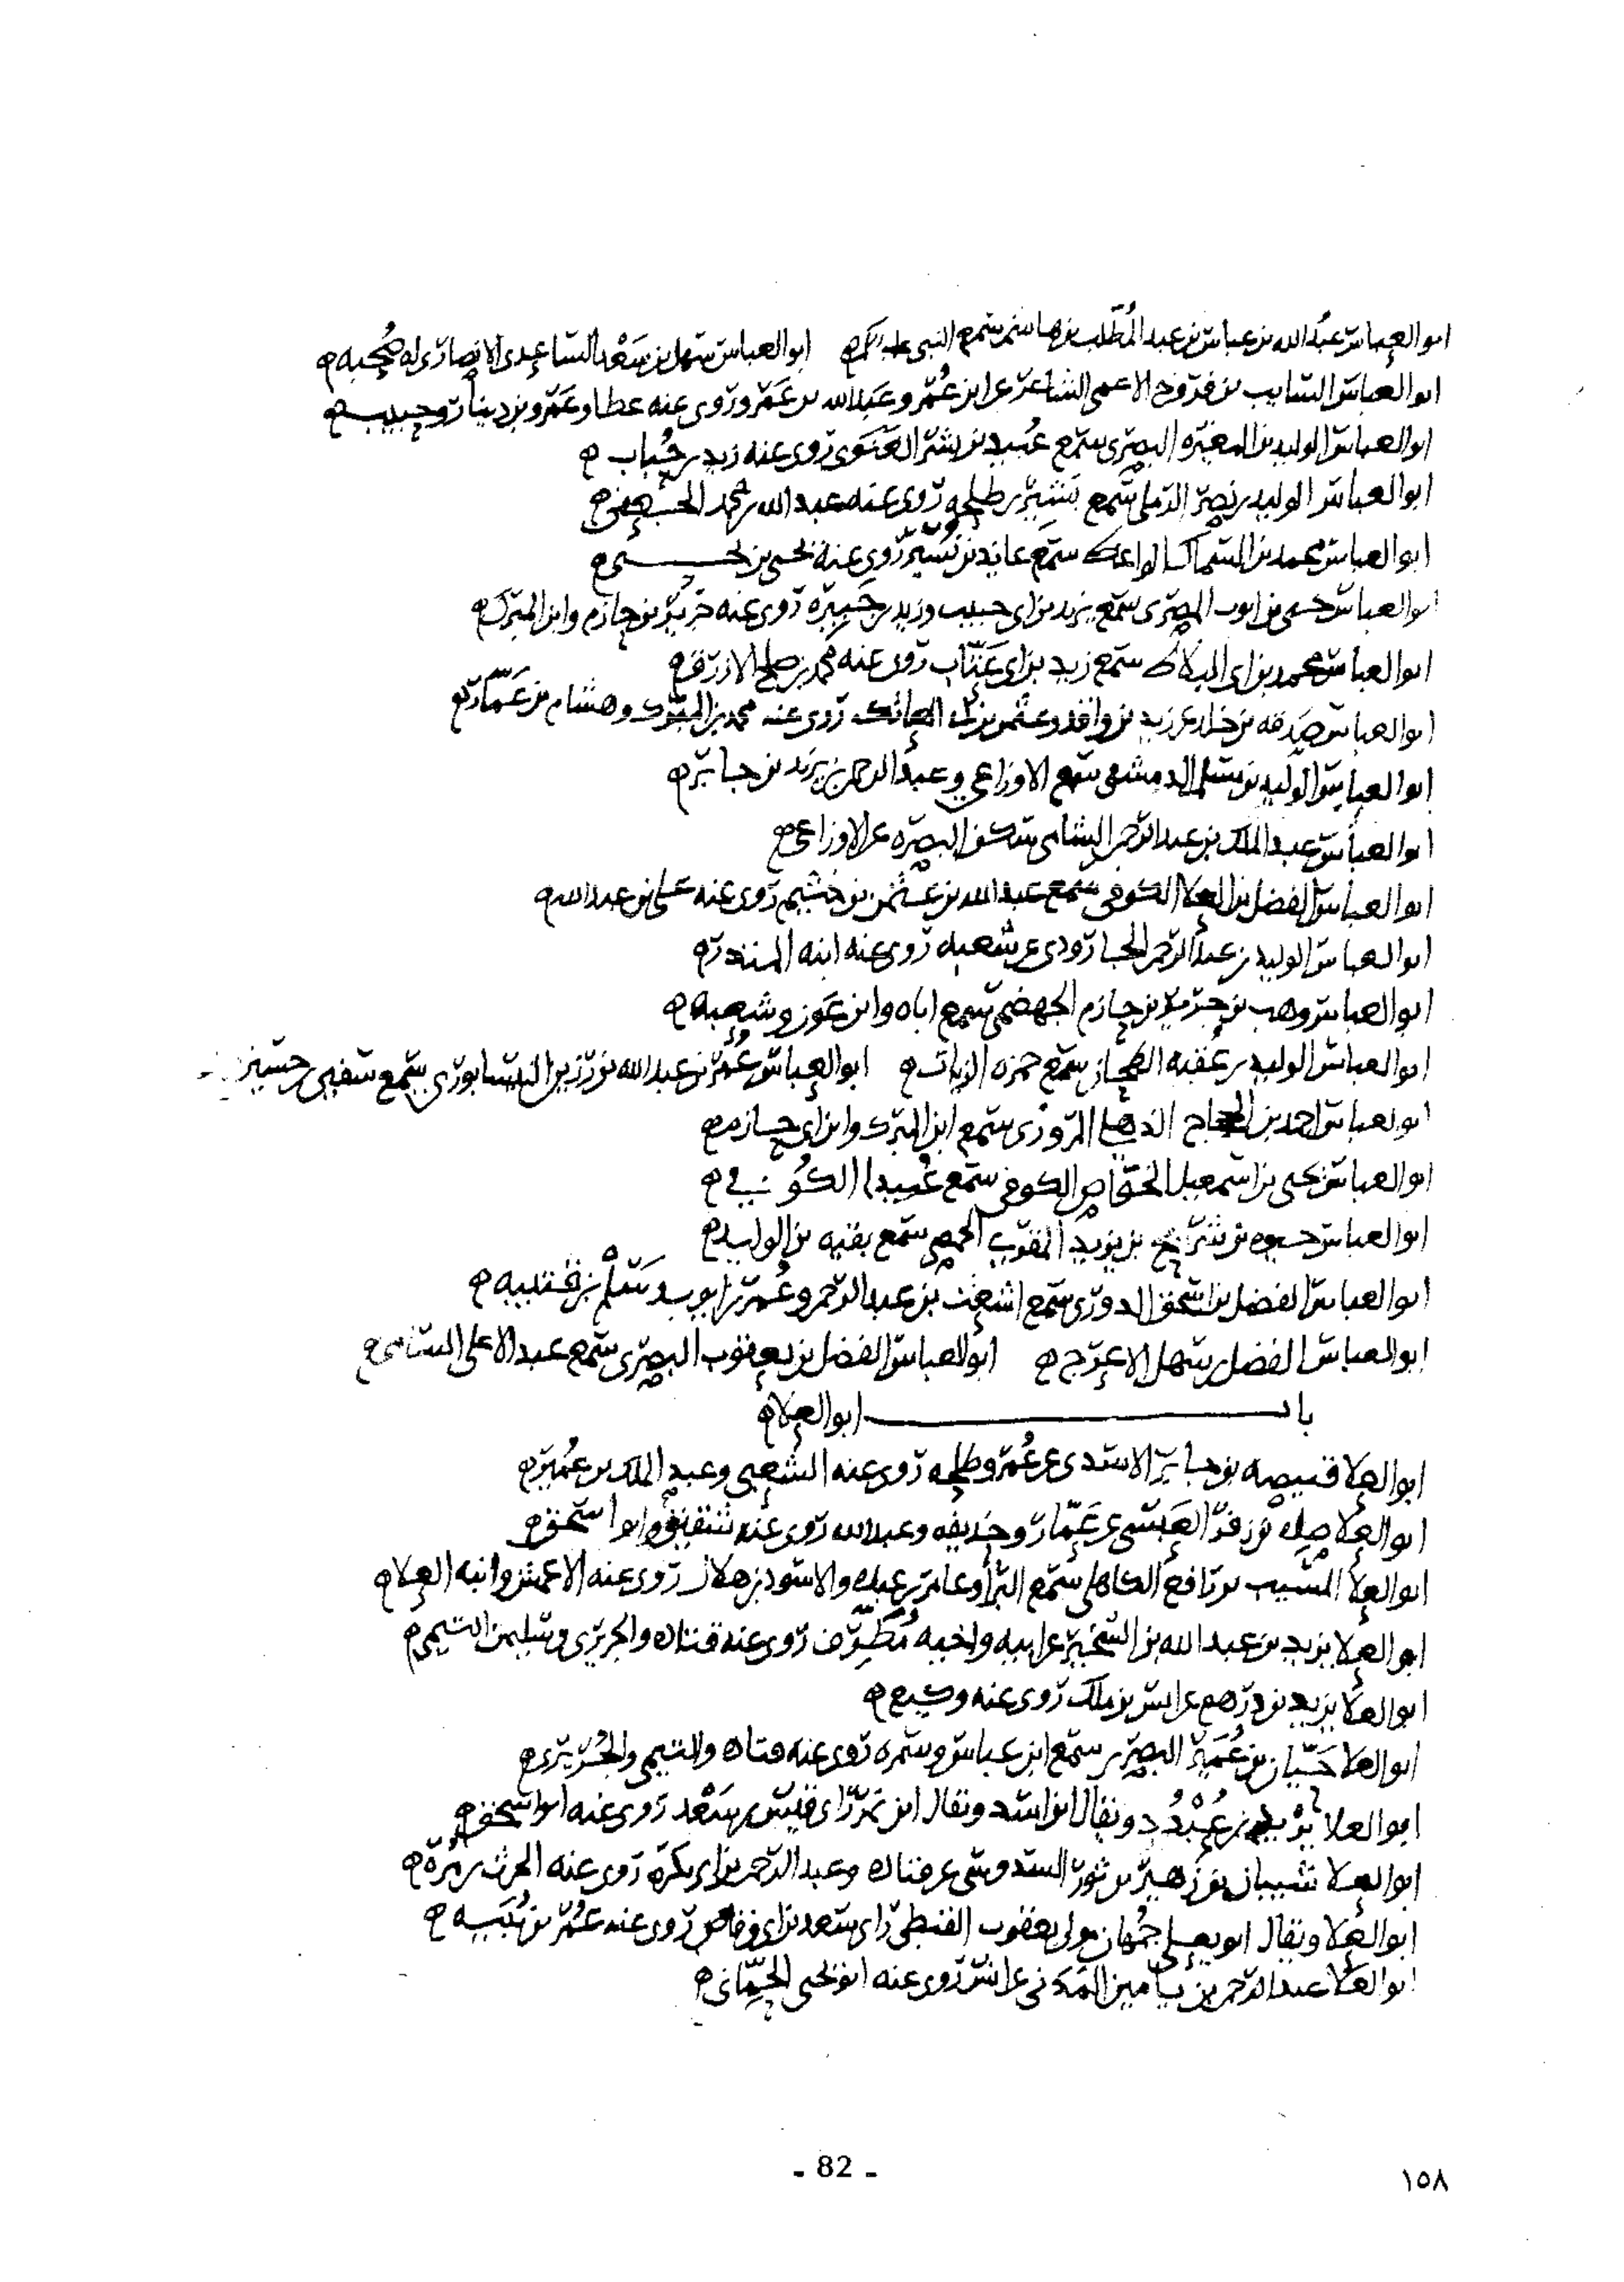 ابو العباس عبد الله بن عباس بن عبد المطلب بن هاشم سمع النبي ابو العباس سهل بن سعد الساعدى الانصارى له صحبه
ابو العباس السايب بن فروخ الاعمى الشاعر عن ابن عمر وعبد الله بن عمرو روى عنه عطا وعمرو بن دينار وحبيب
ابو العباس الوليد بن المغيره البصرى سمع عبيد بن بشر الغنوى روى عنه زيد بن حباب
ابو العباس الوليد بن نصر الرملى سمع بشير بن طلحه روى عنه عبد الله بن محمد
ابو العباس محمد بن السماك الواعظ سمع عايذ بن نسير روى عنه يحيى بن يحيى
ابو العباس يحيى بن ايوب المصرى سمع يزيد بن ابى حبيب روى عنه جرير بن حازم وابن المبرك
ابو العباس محمد بن ابى البلاط سمع زيد بن ابى عتاب روى عنه محمد بن صلح الازرق
ابو العباس صدقه بن خلد عن زيد بن واقد وعثمن بن العاتكه روى عنه محمد بن المبرك وهشام بن عمار
ابو العباس الوليد بن مسلم الدمشقى سمع الاوزاعى وعبد الرحمن بن يزيد بن جابر
ابو العباس عبد الملك بن عبد الرحمن الشامى سكن البصره عن الاوزاعى
ابو العباس الفضل بن العلا الكوفى سمع عبد الله بن عثمن بن خثيم روى عنه على بن عبد الله
ابو العباس الوليد بن عبد الرحمن الجارودى عن شعبه روى عنه ابنه المنذر
ابو العباس وهب بن جرير بن حازم الجهضمى سمع اباه وابن عون وشعبه
ابو العباس الوليد بن عقبه الطحان سمع حمزه الزيات ابو العباس عمر بن عبد الله بن رزين النيسابورى سمع سفين بن حسين
ابو العباس احمد بن الحجاج المروزى سمع ابن المبرك وابن ابى حازم
ابو العباس يحيى بن اسمعيل الخواص الكوفى سمع عبيدا الكوفى
ابو العباس حيوه بن شريح بن يزيد الحمصى سمع بقيه بن الوليد
ابو العباس الفضل بن اسحق الدورى سمع اشعث بن عبد الرحمن وعمر بن ايوب وسلم بن قتيبه
ابو العباس الفضل بن سهل الاعرج ابو العباس الفضل بن يعقوب البصرى سمع عبد الاعلى السامى
باب ابو العلا
ابو العلا قبيصه بن جابر الاسدى عن عمر وطلحه روى عنه الشعبى وعبد الملك بن عمير
ابو العلا صله بن زفر العبسى عن عمار وحذيفه وعبد الله روى عنه شقيق وابو اسحق
ابو العلا المسيب بن رافع الكاهلى سمع البرا وعامر بن عبده والاسود بن هلال روى عنه الاعمش وابنه العلا
ابو العلا يزيد بن عبد الله بن الشخير عن ابيه واخيه مطرف روى عنه قتاده والجريرى وسليمن التيمى
ابو العلا يزيد بن درهم عن انس بن ملك روى عنه وكيع
ابو العلا حيان بن عمير البصرى سمع ابن عباس وسمره روى عنه قتاده والتيمى والجريرى
ابو العلا ويقال ابن اسد ويقال ابن قيس بن سعد روى عنه ابو اسحق
ابو العلا شيبان بن زهير بن ثور السدوسى عن قتاده وعبد الرحمن بن ابى بكرة روى عنه الحرث بن مرة
ابو العلا ويقال ابو يعلى جمهان مولى يعقوب القبطى راى سعد بن ابى وقاص روى عنه عمر بن نبيه
ابو العلا عبد الرحمن بن يامين المدنى عن انس روى عنه ابو يحيى الحمانى
- 82 -
١٥٨